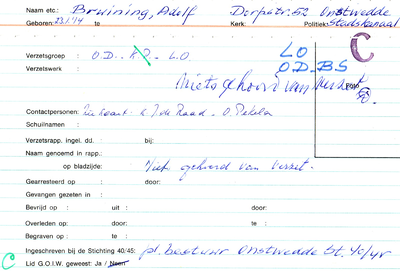 Naam etc.: Bruining, Adolf Dorpstr. 52 Onstwedde
Geboren: 23.1.14 te Kerk: Politiek: Stadskanaal
C
Verzetsgroep : O.D. K.P. L.O. LO
Verzetswerk : O.D. B.S
Niets gehoord van verzet
Foto
Contactpersonen: zie kaart - K. J. de Raad - O. Pekela
Schuilnaam :
Verzetsrapp. ingel. dd. : bij:
Naam genoemd in rapp.:
op bladzijde: Niet gehoord van verzet.
Gearresteerd op : door:
Gevangen gezeten in :
Bevrijd op : uit : door:
Overleden op: te : door:
Begraven op : te :
Ingeschreven bij de Stichting 40/45: pl. bestuur Onstwedde St. 40/45
C Lid G.O.I.W. geweest: Ja / Neen